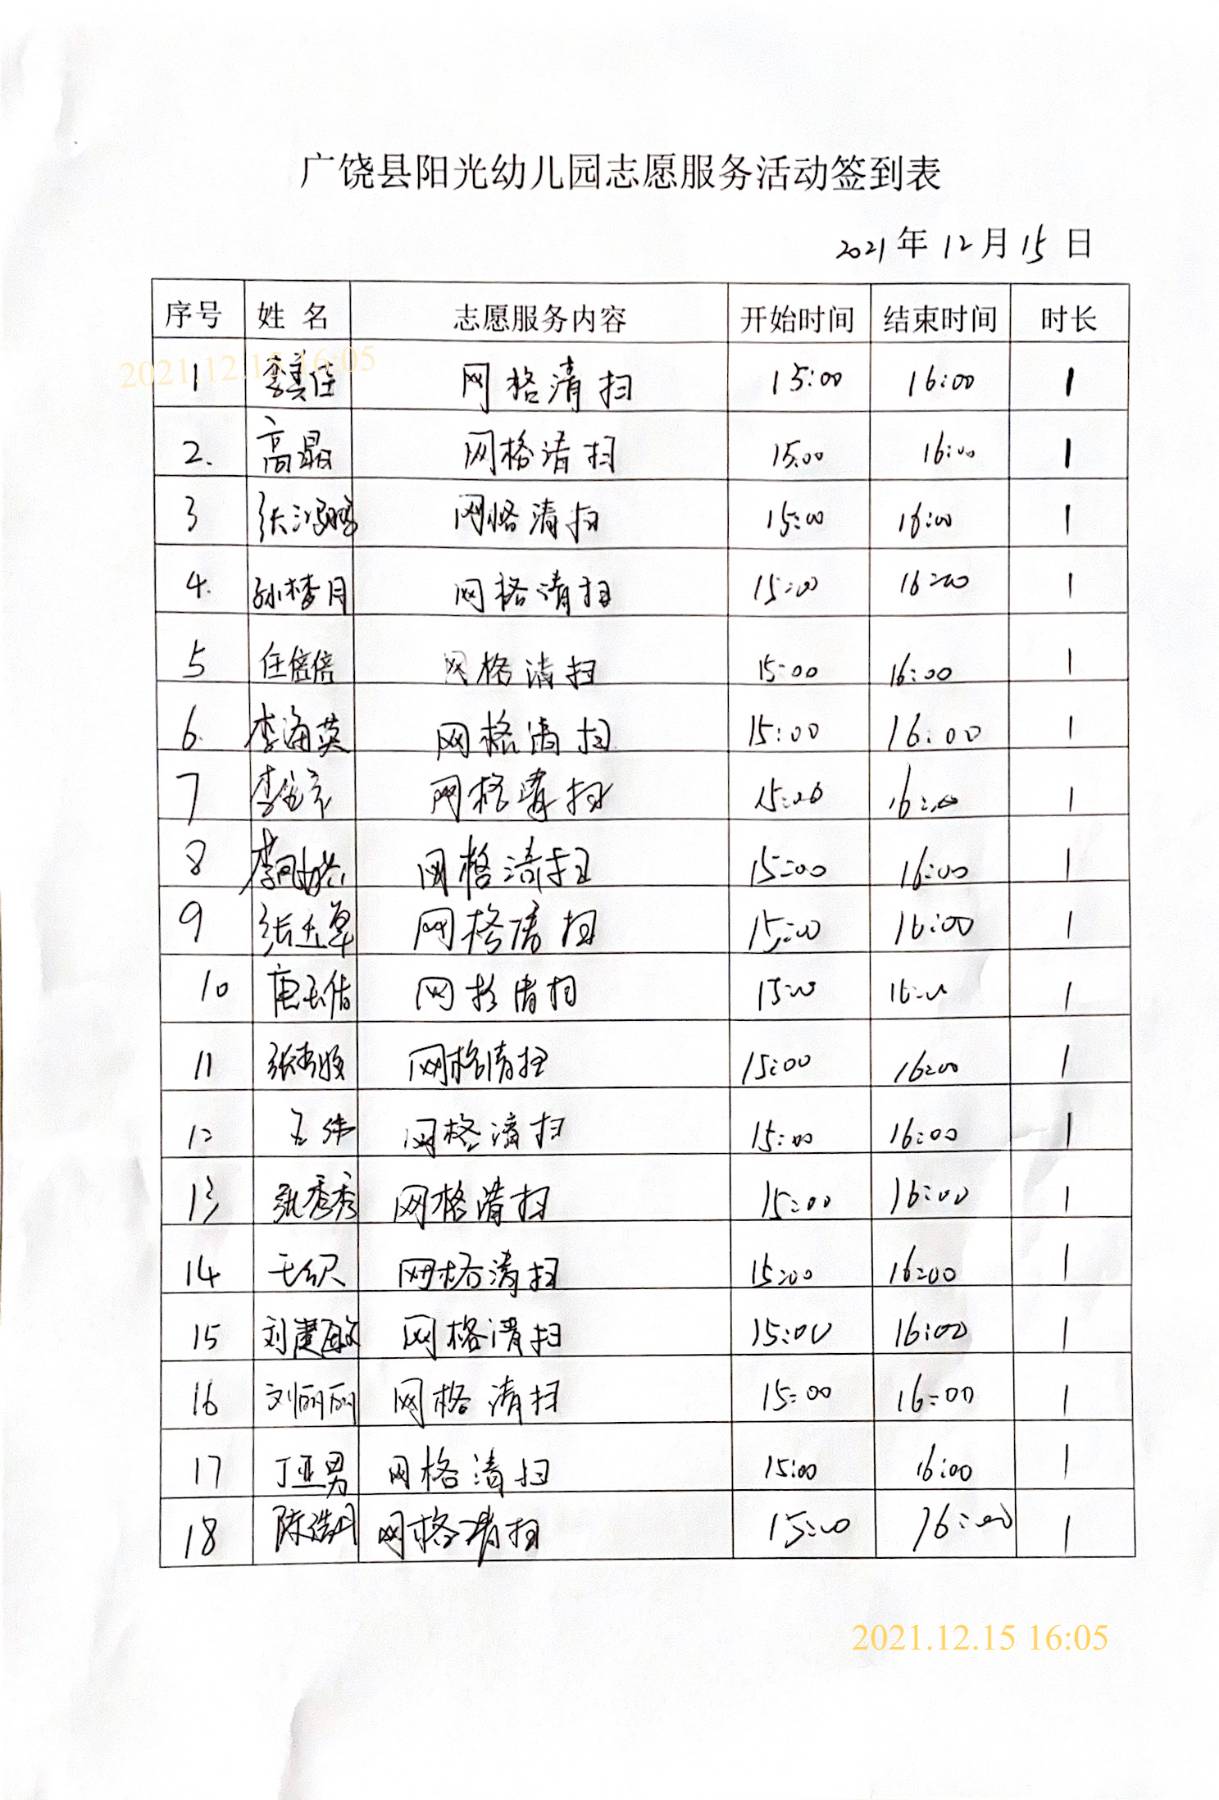 广饶县阳光幼儿园志愿服务活动签到表
2021年12月15日
序号 姓名 志愿服务内容 开始时间 结束时间 时长
2021.12.15 16:05
1 李美佳 网格清扫 15:00 16:00 1
2. 高晶 网格清扫 15:00 16:00 1
3 张鸿鹏 网格清扫 15:00 16:00 1
4. 孙梦月 网格清扫 15:00 16:00 1
5 任倍倍 网格清扫 15:00 16:00 1
6. 李海英 网格清扫 15:00 16:00 1
7 李 网格清扫 15:00 16:00 1
8 李凤 网格清扫 15:00 16:00 1
9 张 网格清扫 15:00 16:00 1
10 唐玉倩 网格清扫 15:00 16:00 1
11 张 网格清扫 15:00 16:00 1
12 王伟 网格清扫 15:00 16:00 1
13 张秀秀 网格清扫 15:00 16:00 1
14 王织 网格清扫 15:00 16:00 1
15 刘建敏 网格清扫 15:00 16:00 1
16 刘丽丽 网格清扫 15:00 16:00 1
17 丁亚男 网格清扫 15:00 16:00 1
18 陈浩月 网格清扫 15:00 16:00 1
2021.12.15 16:05